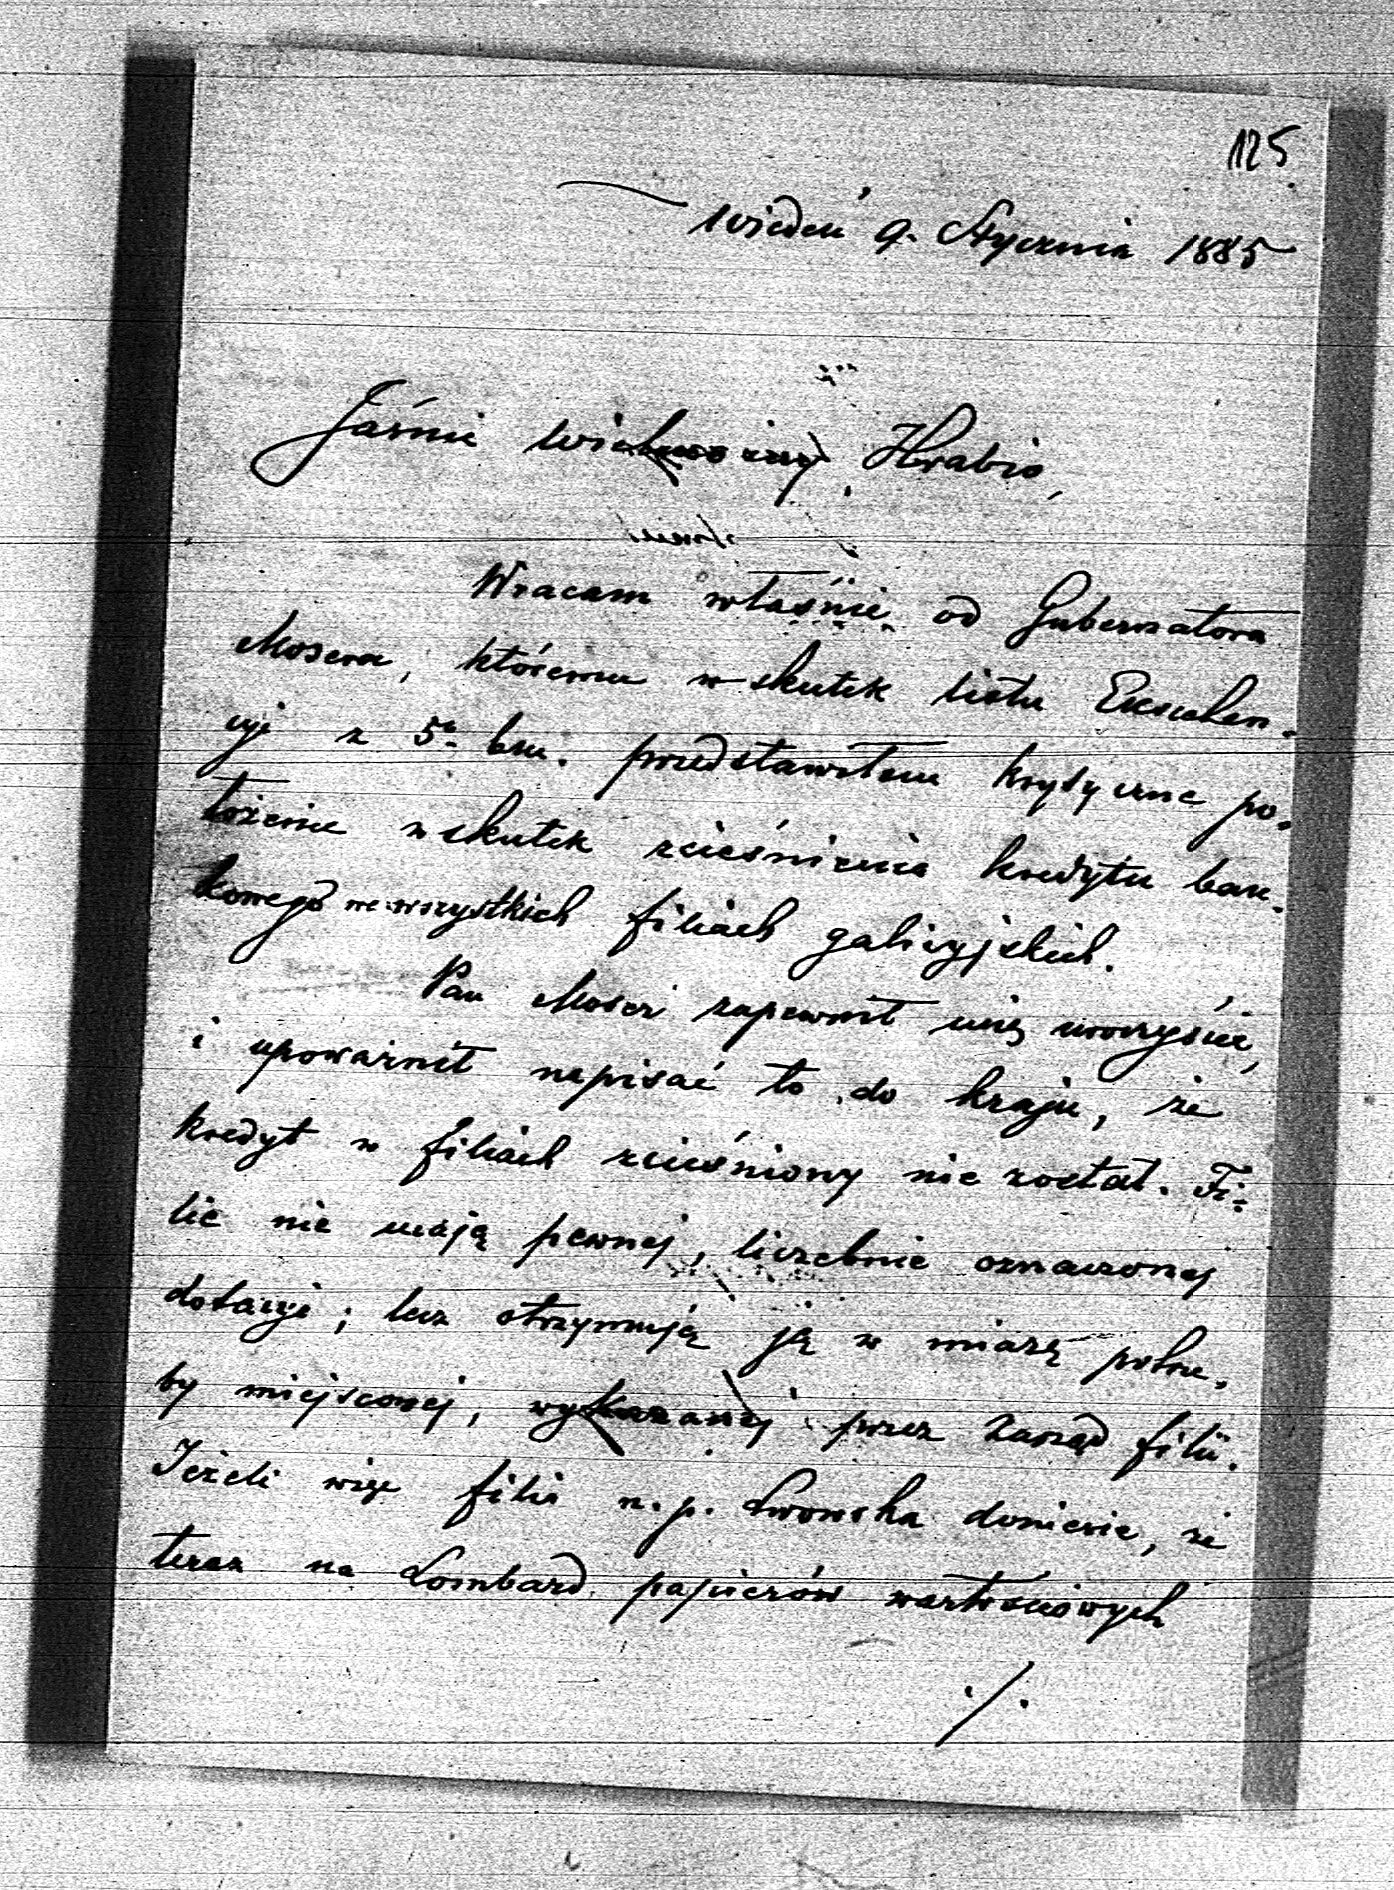 125
Wiedeń 9. Stycznia 1885
Jaśnie Wielmożny Hrabio,
Wracam właśnie od Gubernatora
Mosera, któremu w skutek listu Excelen-
cyi z 5. bm. przedstawiłem krytyczne po-
łożenie w skutek ścieśnienia kredytu ban-
kowego we wszystkich filiach galicyjskich.
Pan Moser zapewnił mię uroczyście,
i upoważnił napisać to do kraju, że
kredyt w filiach ścieśniony nie został. Fi-
lie nie mają pewnej, liczebnie oznaczonej
dotacyi; lecz otrzymują ją w miarę potrze-
by miejscowej, wykazanej przez Zarząd filii.
Jeżeli więc filia n.p. Lwowska doniesie, że
teraz na Lombard papierów wartościowych
./.